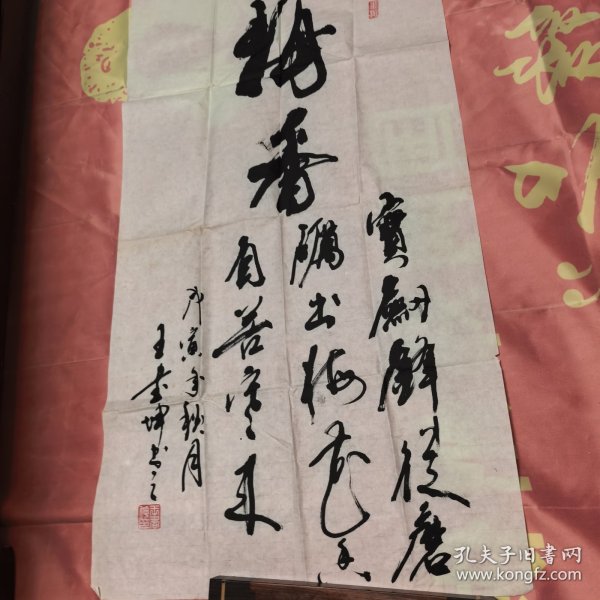 梅
香
寶劍鋒從磨
礪出梅花香
自苦寒来
戊寅年秋月
王
坤书之
孔夫子旧书网
www.kongfz.com